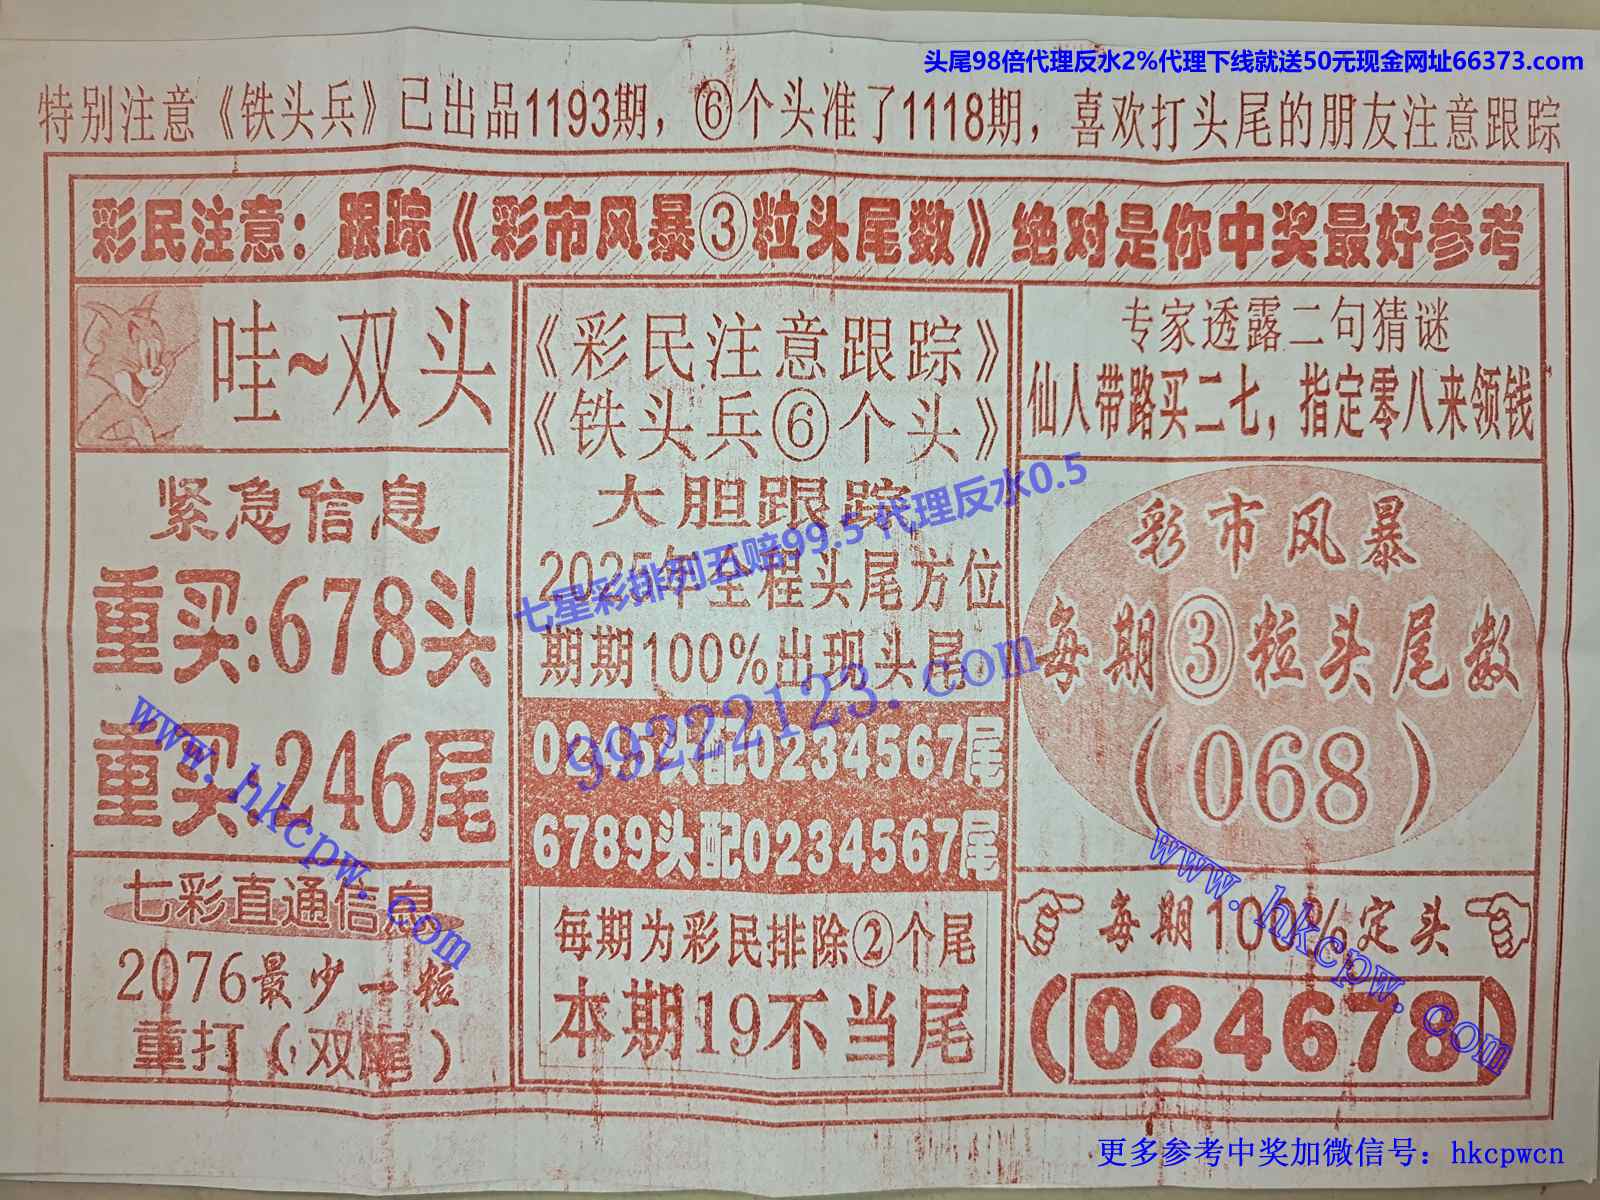 头尾98倍代理反水2%代理下线就送50元现金网址66373.com
特别注意《铁头兵》已出品1193期，⑥个头准了1118期，喜欢打头尾的朋友注意跟踪
彩民注意：跟踪《彩市风暴③粒头尾数》绝对是你中奖最好参考
哇~双头
紧急信息
重买:678头
重买:246尾
七彩直通信息
2076最少一粒
重打（双尾）
《彩民注意跟踪》
《铁头兵⑥个头》
大胆跟踪
2025年全程头尾方位
期期100%出现头尾
头配0234567尾
6789头配0234567尾
每期为彩民排除②个尾
本期19不当尾
专家透露二句猜谜
仙人带路买二七，指定零八来领钱
彩市风暴
每期③粒头尾数
（068）
每期100%定头
（024678）
七星彩排列五赔99.5代理反水0.5
99222123.com
www.hkcpw.com
www.hkcpw.com
更多参考中奖加微信号：hkcpwcn